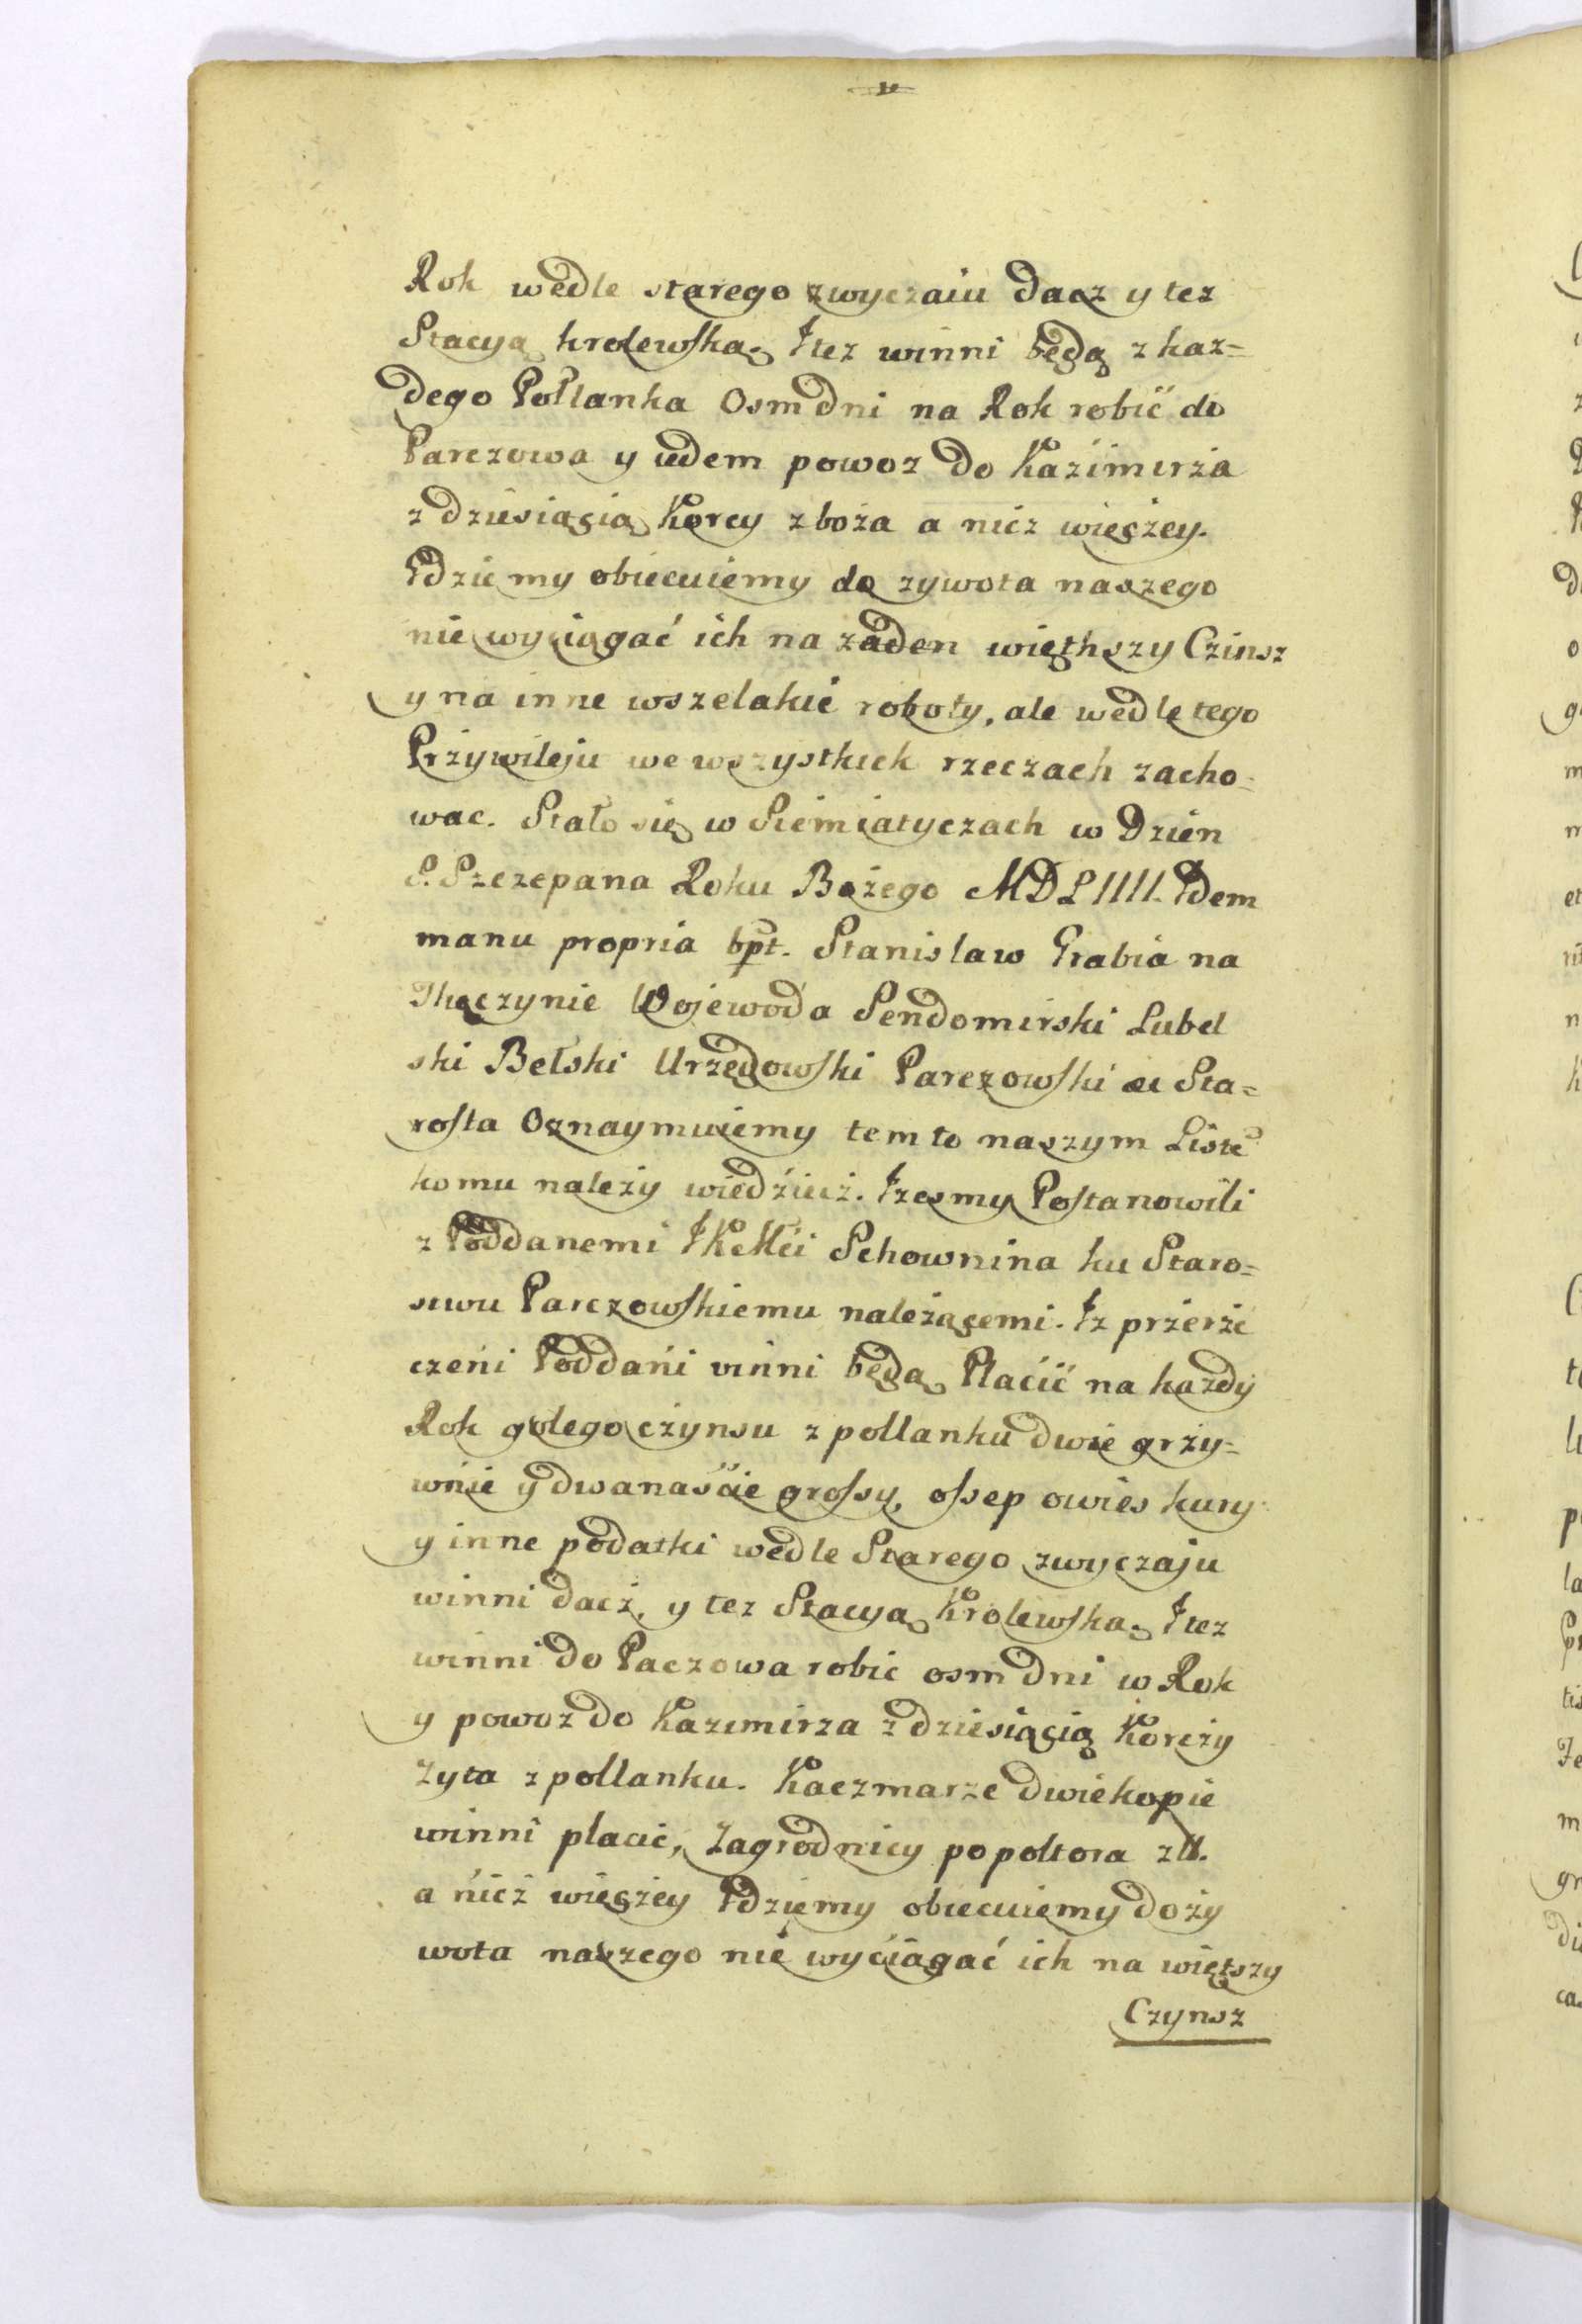 Rok wedle starego zwyczaiu dacz y tez
Stacyą krolewską. Itez winni będą z kaz=
dego Połłanka Osm dni na Rok robić do
Parczowa y iedem powoz do Kazimirza
z dziesiącią Korcy zboża a nicz więczey.
Gdzie my obiecuiemy do zywota naszego
nie wyciągać ich na zaden więthszy Czinsz
y na inne wszelakie roboty, ale wedle tego
Przywileju we wszystkick rzeczach zacho=
wac. Stało się w Siemiatyczach w Dzien
S. Szczepana Roku Bożego MDLIIII. Idem
manu propria spt. Stanislaw Grabia na
Thęczynie Wojewoda Sendomirski Lubel
ski Bełski Urzędowski Parczowski et Sta=
rosta Oznaymuiemy tem to naszym Liste
komu należy wiedziecz. Izesmy Postanowili
z Poddanemi JKMci Schownina ku Staro=
stwu Parczowskiemu należącemi. Iz przerze
czeni Poddani winni będą Płacić na każdy
Rok golego czynsu z pollanku dwie grzy=
wnie y dwanaście grossy, ossep owies kury
y inne podatki wedle Starego zwyczaju
winni dacz, y tez Stacyą Krolewską. Itez
winni do Paczowa robic osm dni w Rok
y powoz do Kazimirza z dziesiącią Korczy
zyta z pollanku. Kaczmarze dwie kopie
winni placic, Zagrodnicy po poltora zll.
a nicz więczey Gdziemy obiecuiemy do ży
wota naszego nie wyciągać ich na więtszy
Czynsz